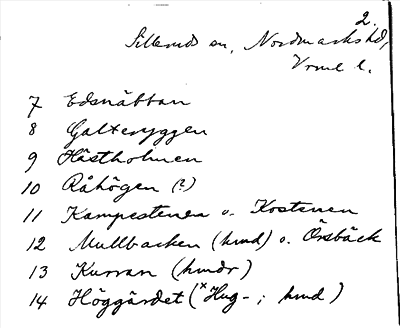 2.
Silleruds sn, Nordmarks hd,
Vrml l.
7 Edsnäbban
8 Galtryggen
9 Hästholmen
10 Råhögen (?)
11 Kampestenen o. Kostenen
12 Mullbacken (hmd) o. Örsbäck
13 Kurran (hmdr)
14 Höggärdet (×Hug- ; hmd)